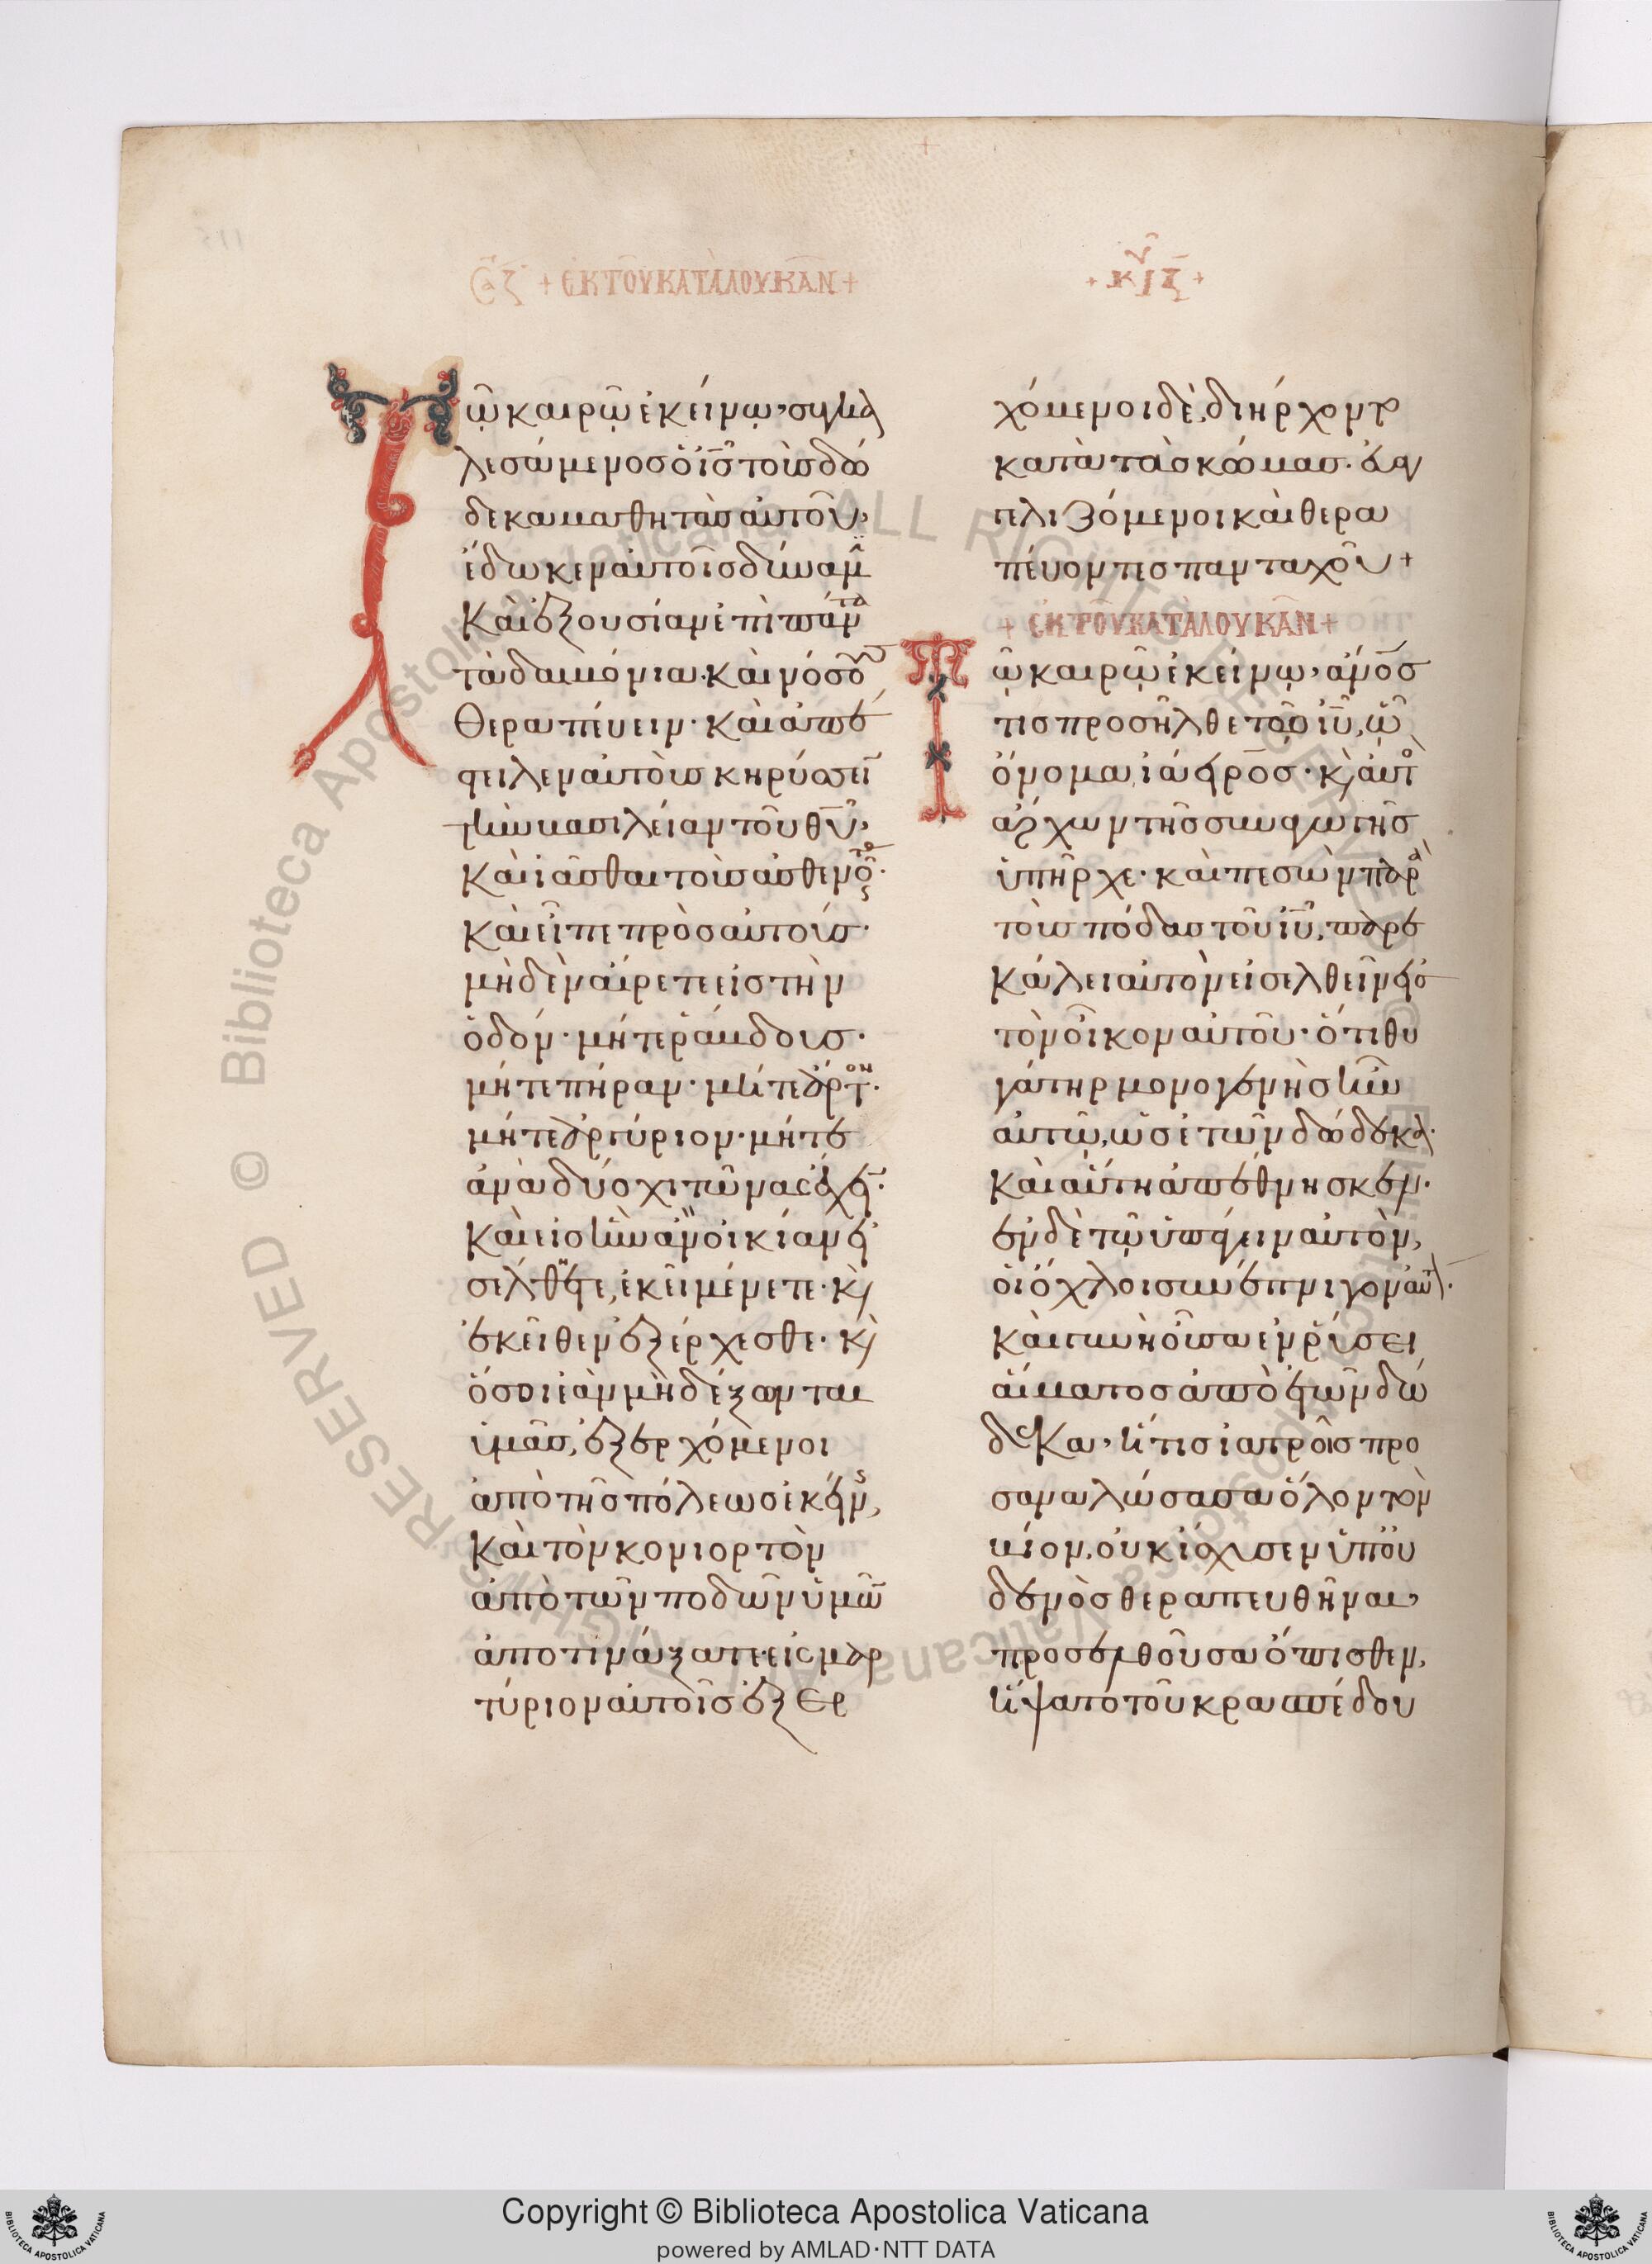 Σα ζ + ΕΚ ΤΟΥ ΚΑΤΑ ΛΟΥΚΑΝ +
+ ΚΥ ζ +
Τῶ καιρῶ ἐκείνω, συγκα
λεσάμενος ὁ ις τοὺς δώ
δεκα μαθητὰς αὐτοῦ,
ἔδωκεν αὐτοῖς δύναμιν
καὶ ἐξουσίαν ἐπὶ πάντα
τὰ δαιμόνια. καὶ νόσους
θεραπεύειν· καὶ ἀπέ
στειλεν αὐτοὺς κηρύσσειν
τὴν βασιλείαν τοῦ θυ,
καὶ ἰᾶσθαι τοὺς ἀσθενοῦντας·
καὶ εἶπε πρὸς αὐτούς·
μηδὲν αἴρετε εἰς τὴν
ὁδόν· μήτε ῥάβδους·
μήτε πήραν· μήτε ἄρτον·
μήτε ἀργύριον· μήτε
ἀνὰ δύο χιτῶνας ἔχειν·
καὶ εἰς ἣν ἂν οἰκίαν εἰ
σέλθητε, ἐκεῖ μένετε· κὶ
ἐκεῖθεν ἐξέρχεσθε· κὶ
ὅσοι ἐὰν μὴ δέξωνται
ὑμᾶς, ἐξερχόμενοι
ἀπὸ τῆς πόλεως ἐκείνης,
καὶ τὸν κονιορτὸν
ἀπὸ τῶν ποδῶν ὑμῶν
ἀποτινάξατε· εἰς μαρ
τύριον αὐτοῖς ἐξερ
χόμενοι δὲ, διήρχοντο
κατὰ τὰς κώμας· εὐαγ
γελιζόμενοι καὶ θερα
πεύοντες πανταχοῦ +
+ ΕΚ ΤΟΥ ΚΑΤΑ ΛΟΥΚΑΝ +
Τῶ καιρῶ ἐκείνω, ἄνος
τις προσῆλθε τῶ ιυ, ὧ
ὄνομα, ἰάειρος· κὶ αὐτὸς
ἄρχων τῆς συναγωγῆς
ὑπῆρχε· καὶ πεσὼν παρὰ
τοὺς πόδας τοῦ ιυ, παρε
κάλει αὐτὸν εἰσελθεῖν εἰς
τὸν οἶκον αὐτοῦ· ὅτι θυ
γάτηρ μονογενὴς ἦν
αὐτῶ, ὡς ἐτῶν δώδεκα·
καὶ αὕτη ἀπέθνησκεν·
ἐν δὲ τῶ ὑπάγειν αὐτὸν,
οἱ ὄχλοι συνέπνιγον αὐτόν·
καὶ γυνὴ οὖσα ἐν ῥύσει
αἵματος ἀπὸ ἐτῶν δώ
δεκα, ἥτις ἰατροῖς προ
σαναλώσασα ὅλον τὸν
βίον, οὐκ ἴσχυσεν ὑπ' οὐ
δενὸς θεραπευθῆναι,
προσελθοῦσα ὄπισθεν,
ἥψατο τοῦ κρασπέδου
Copyright © Biblioteca Apostolica Vaticana
powered by AMLAD·NTT DATA